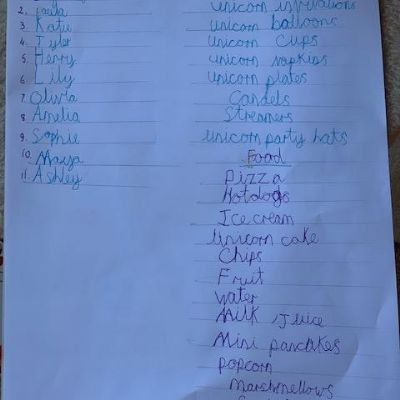 2. Layla
3. Katie
4. Tyler
5. Henry
6. Lily
7. Olivia
8. Amelia
9. Sophie
10. Maya
11. Ashley
unicorn invitations
unicorn balloons
unicorn cups
unicorn napkins
unicorn plates
Candels
Streamers
unicorn party hats
Food
Pizza
Hotdogs
Ice cream
Unicorn cake
Chips
Fruit
water
Milk / Juice
Mini pancakes
popcorn
Marshmellows